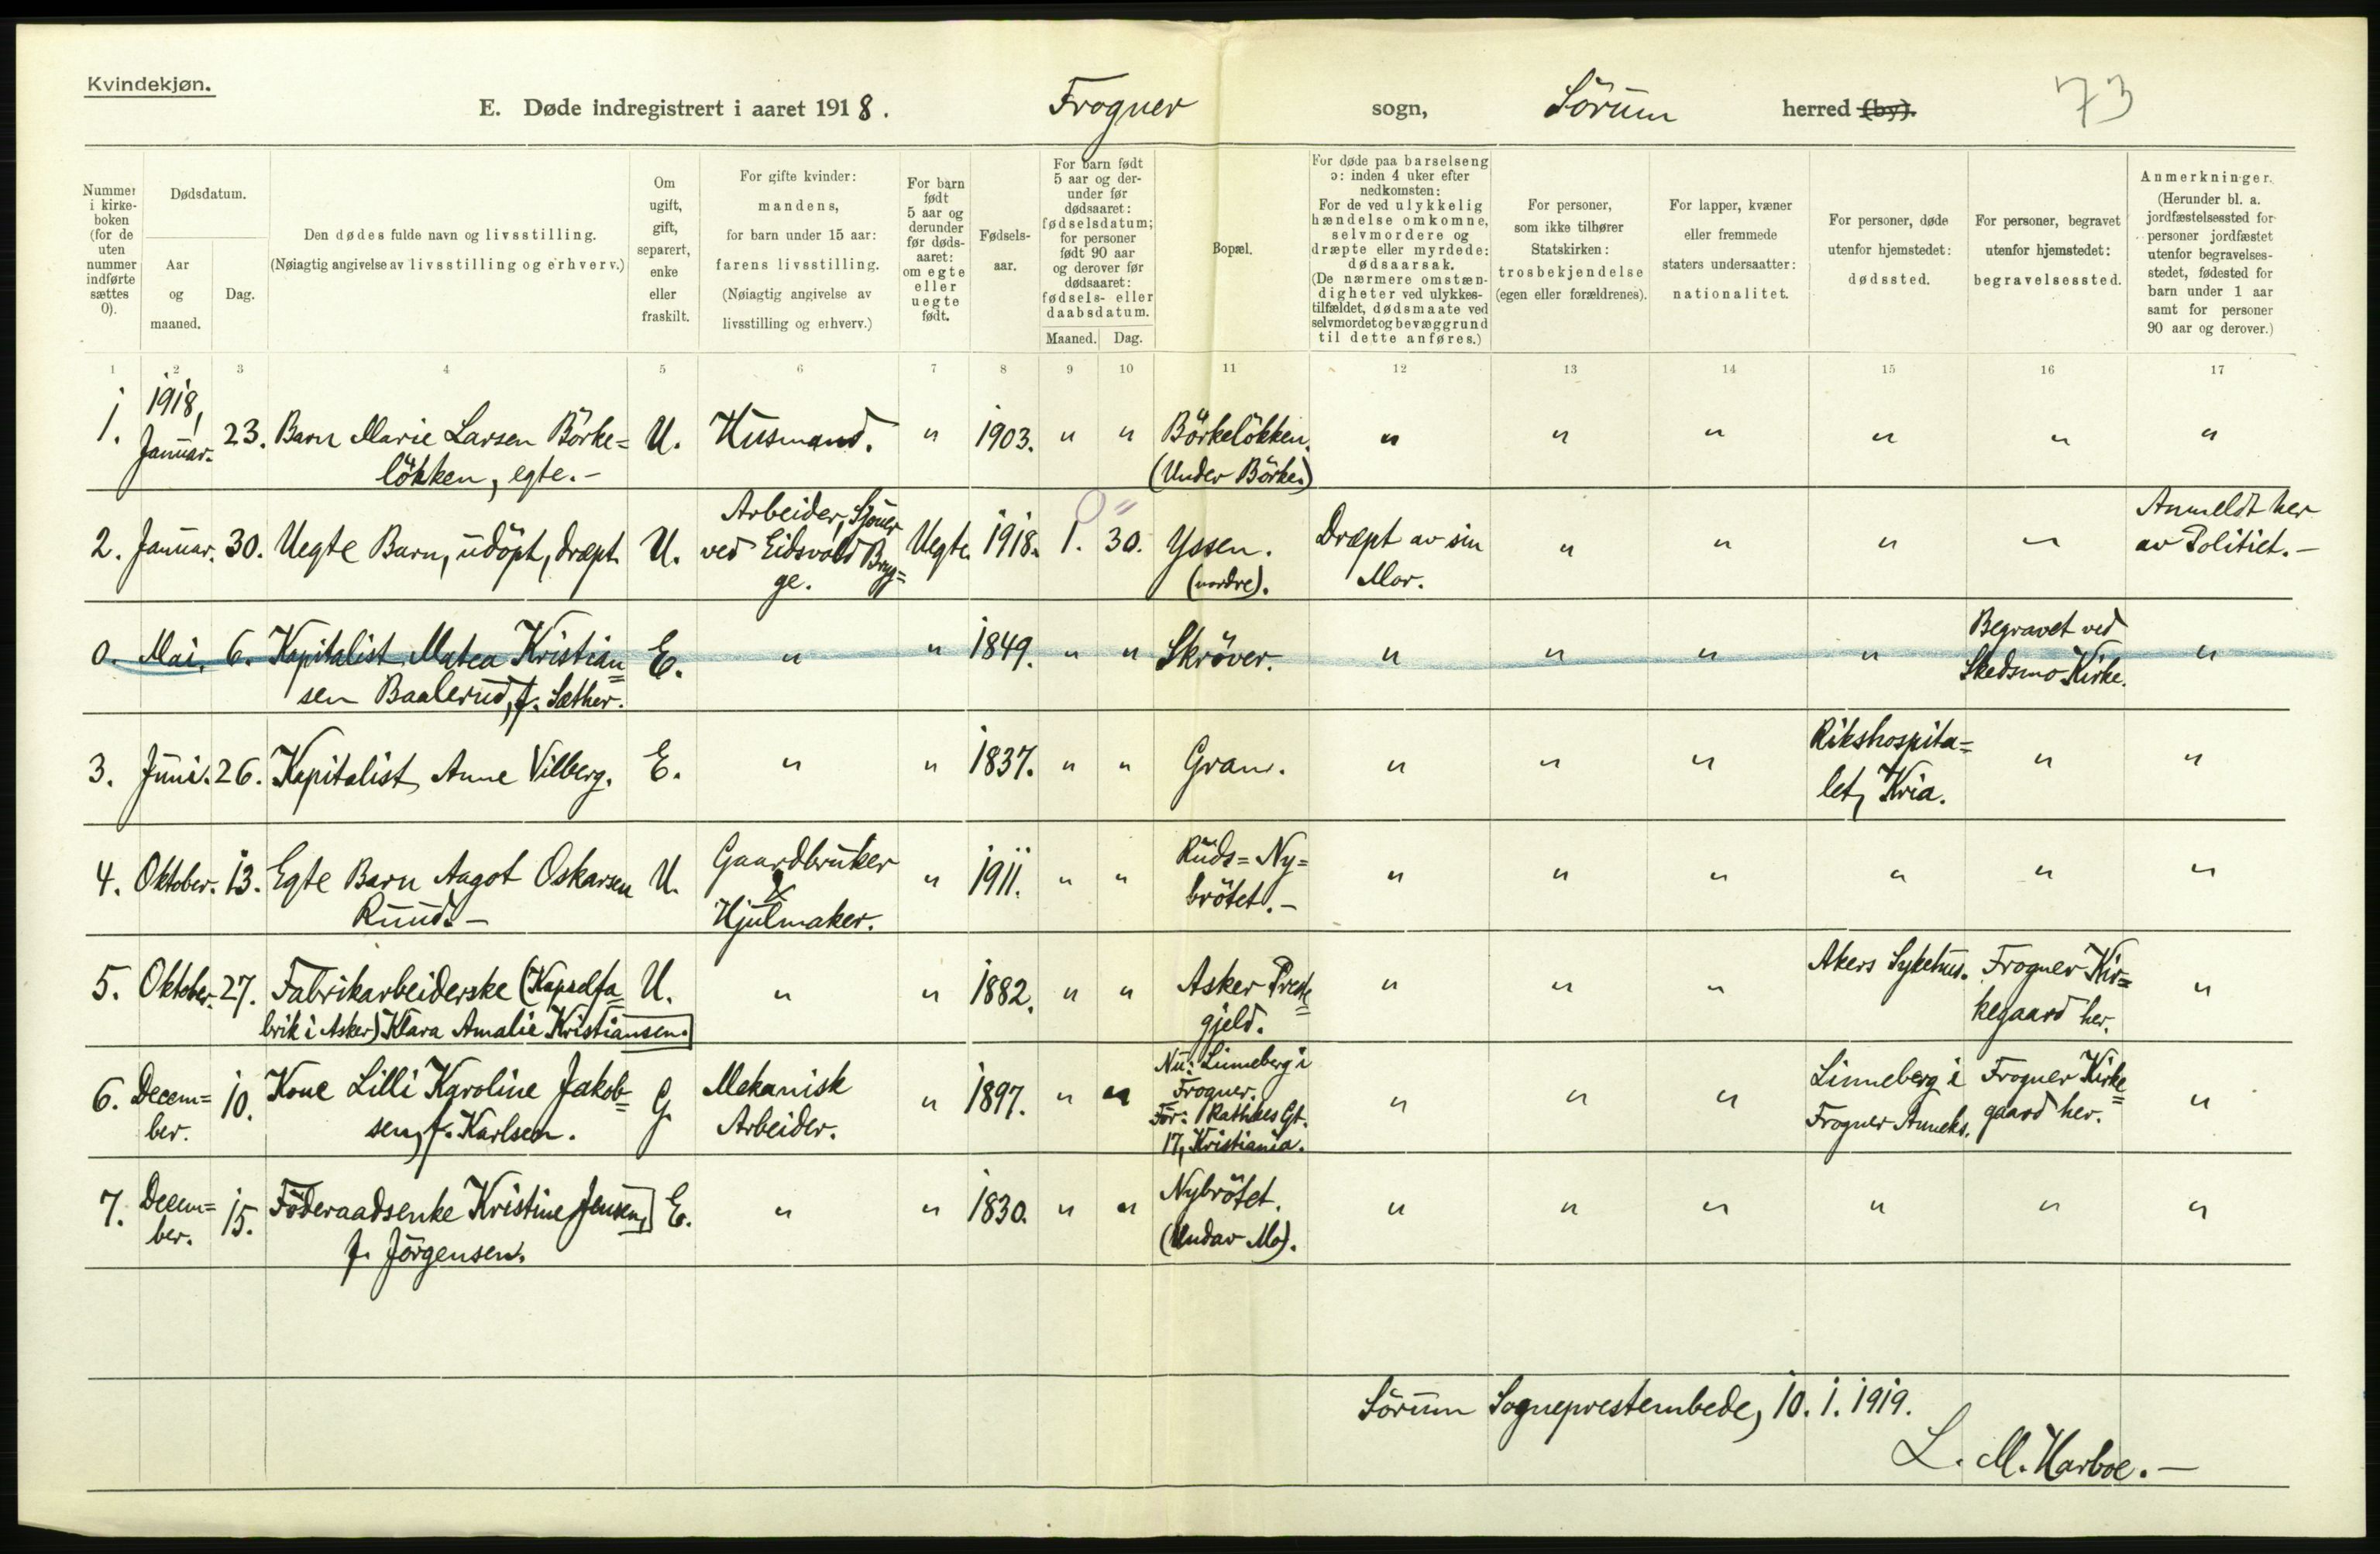 Kvindekjøn.
E. Døde indregistrert i aaret 1918. Frogner sogn, Sörum herred (by). 73
Nummer i kirkeboken (for de uten nummer indførte sættes 0).
Dødsdatum.
Aar og maaned.
Dag.
Den dødes fulde navn og livsstilling.
(Nøiagtig angivelse av livsstilling og erhverv.)
Om ugift, gift, separert, enke eller fraskilt.
For gifte kvinder: mandens, for barn under 15 aar: farens livsstilling. (Nøiagtig angivelse av livsstilling og erhverv.)
For barn født 5 aar og derunder før dødsaaret: om egte eller uegte født.
Fødselsaar.
For barn født 5 aar og derunder før dødsaaret: fødselsdatum; for personer født 90 aar og derover før dødsaaret: fødsels- eller daabsdatum.
Maaned. Dag.
Bopæl.
For døde paa barselseng ɔ: inden 4 uker efter nedkomsten: For de ved ulykkelig hændelse omkomne, selvmordere og dræpte eller myrdede: dødsaarsak. (De nærmere omstændigheter ved ulykkestilfældet, dødsmaate ved selvmordet og bevæggrund til dette anføres.)
For personer, som ikke tilhører Statskirken: trosbekjendelse (egen eller forældrenes).
For lapper, kvæner eller fremmede staters undersaatter: nationalitet.
For personer, døde utenfor hjemstedet: dødssted.
For personer, begravet utenfor hjemstedet: begravelsessted.
Anmerkninger. (Herunder bl. a. jordfæstelsessted for personer jordfæstet utenfor begravelsesstedet, fødested for barn under 1 aar samt for personer 90 aar og derover.)
1 2 3 4 5 6 7 8 9 10 11 12 13 14 15 16 17
1. 1918, Januar. 23. Barn Marie Larsen Börke= U. Husmand. " 1903. " " Börkelökken. " " " " " "
lökken, egte. – (Under Börke.)
2. Januar. 30. Uegte Barn, udöpt, dræpt. U. Arbeider, Sjouer ved Eidsvold Bryg= ge. Uegte. 1918. 1. 30. Yssen. (nordre). Dræpt av sin Mor. " " " " Anmeldt her av Politiet. –
0. Mai. 6. Kapitalist Matea Kristian= E. " " 1849. " " Skröver. " " " " Begravet ved Skedsmo Kirke. "
sen Baalerud, f. Sæther.
3. Juni. 26. Kapitalist Anne Vilberg. E. " " 1837. " " Gran. " " " Rikshospita= let, Kria. " "
4. Oktober. 13. Egte Barn Aagot Oskarsen U. Gaardbruker & Hjulmaker. " 1911. " " Ruds= Ny= brötet. – " " " " " "
Ruud. –
5. Oktober. 27. Fabrikarbeiderske (Kapselfa= U. " " 1882. " " Asker Preste= gjeld. " " " Akers Sykehus. Frogner Kir= kegaard her. "
brik i Asker) Klara Amalie Kristiansen.
6. Decem= ber. 10. Kone Lilli Karoline Jakob= G. Mekanisk Arbeider. " 1897. " " Nu: Linneberg i Frogner. Før: Rathkes Gt. 17, Kristiania. " " " Linneberg i Frogner Anneks. Frogner Kirke= gaard her. "
sen, f. Karlsen.
7. Decem= ber. 15. Föderaadsenke Kristine Jensen, E. " " 1830. " " Nybrötet. (Under Mo). " " " " " "
f. Jörgensen.
Sörum Sogneprestembede, 10. 1. 1919.
L. M. Harboe. –